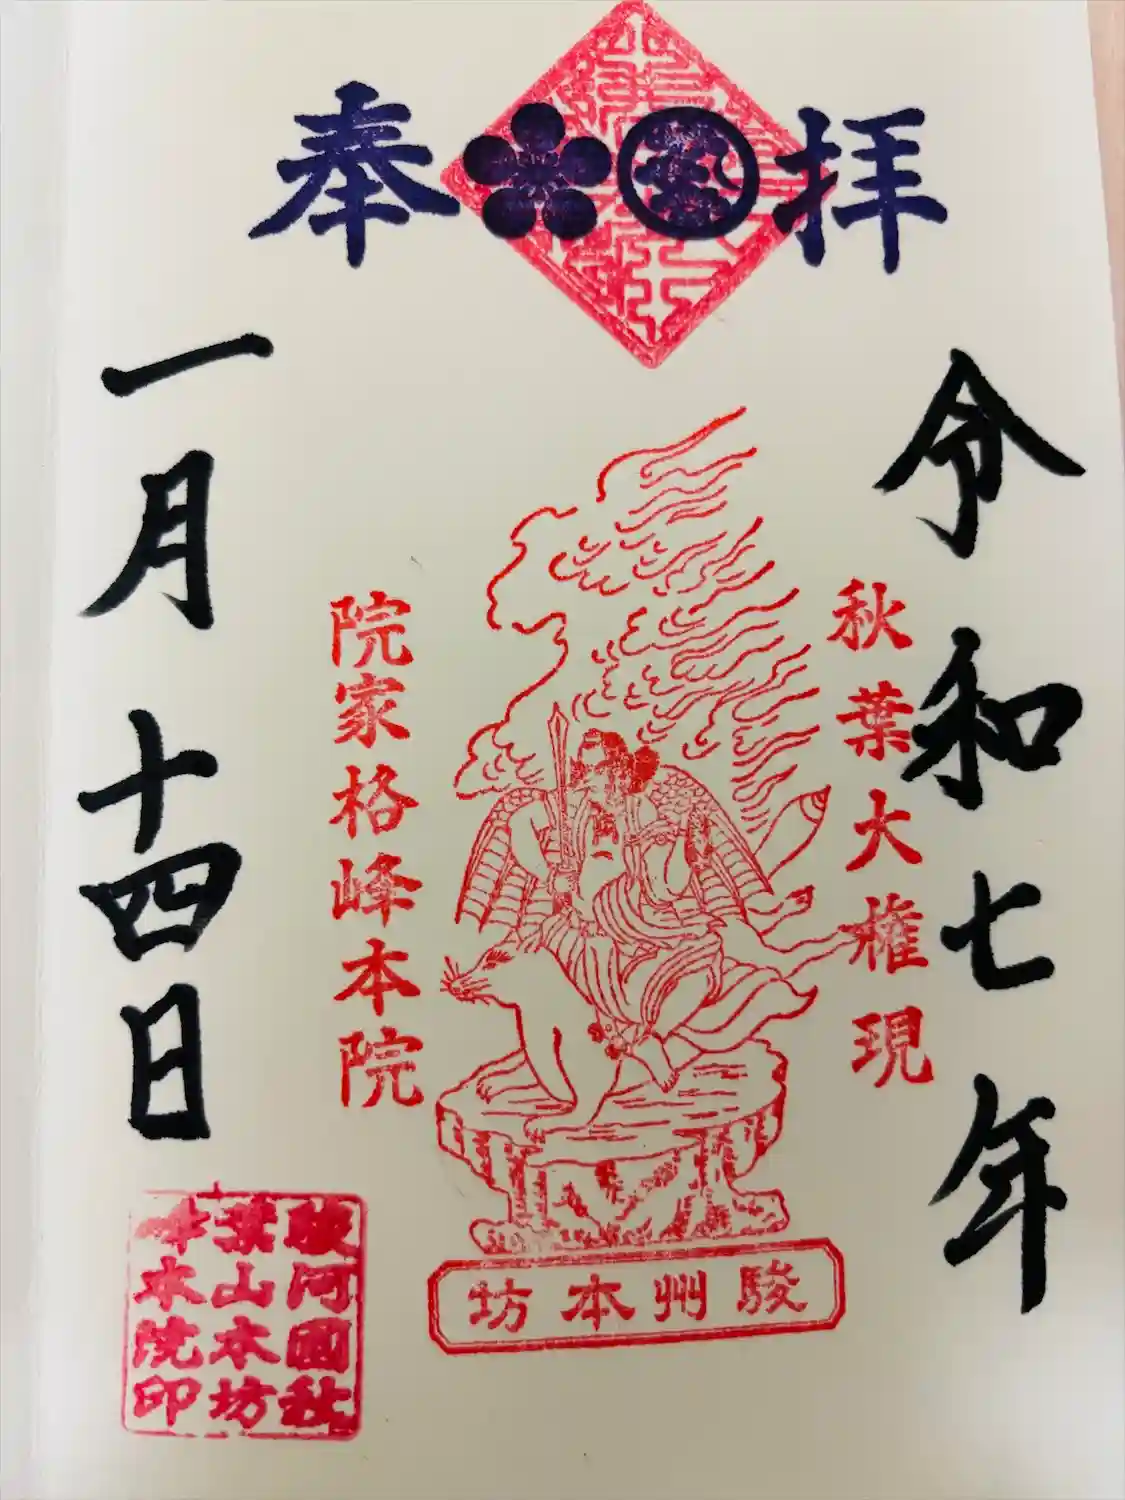 奉拝
令和七年
秋葉大権現
院家格峰本院
一月十四日
駿州本坊
駿河國秋
葉山本坊
峰本院印